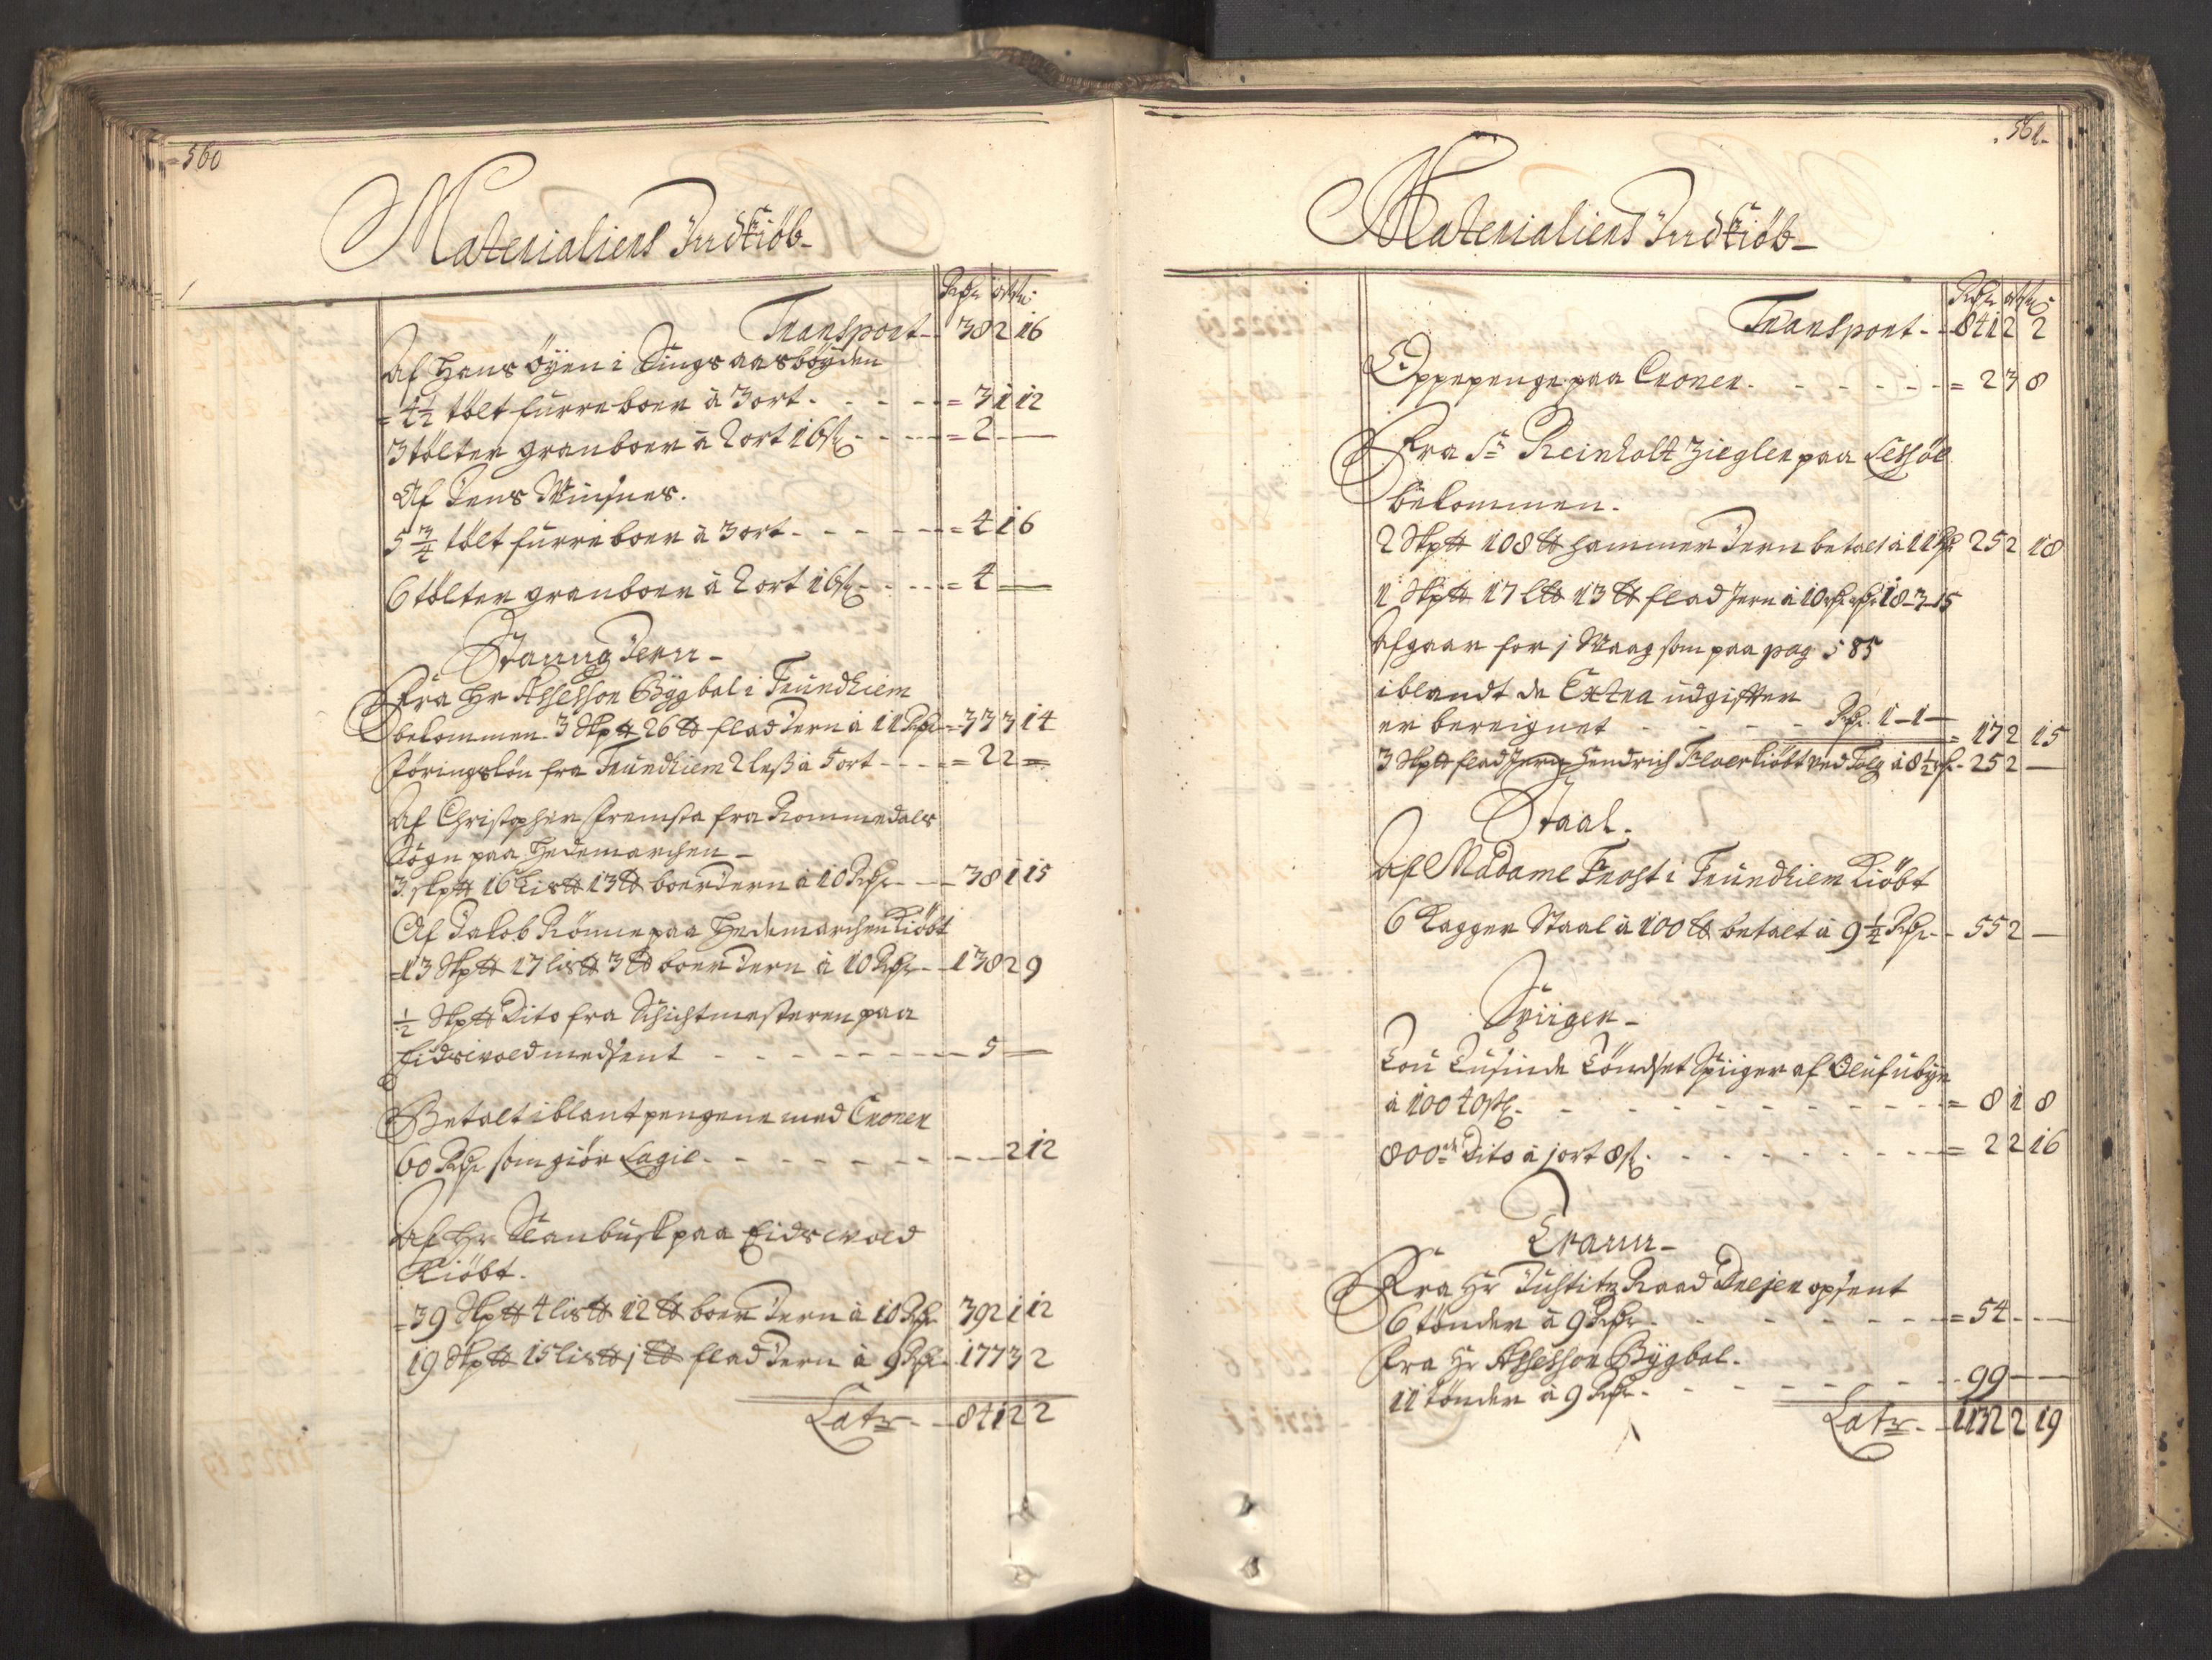 560
Materialiens Indkiöb
Rdr ort ß
Transport - 382 16
Af Hans Öyen i Singsaasböyden
= 4½ tölt furre boer à 3 ort - - - = 3 1 12
3 tölter granboer à 2 ort 16 ß - - - = 2 - —
Af Jens
5 ¾ tölt furre boer à 3 ort - - - - = 4 1 6
6 tölter granboer à 2 ort 16 ß - - - = 4 —
Stanng Jern -
Fra Hr Assessor Bÿgbal i Trundhiem
bekommen 3 Skp℔ 26 ℔ flad Jern à 11 Rdr = 33 3 14
föringslön fra Trundhiem 2 lass à 5 ort - - - = 2 2 =
Af Christopher fra Rommedals
Sogn paa Hedemarchen -
3 skp℔ 16 Lis℔ 13 ℔ boer Jern à 10 Rdr - - 38 1 15
Af Jakob Rönne paa Hedemarchen Kiöbt
= 13 Skp℔ 17 lis℔ 3 ℔ boer Jern à 10 Rdr - - 138 2 9
½ Skp℔ Dito fra Schichtmesteren paa
Eidsivold medsent - - - - - - - 5 —
Betalt iblant pengene med Croner
60 Rdr som giör Lagie - - - - - - - 2 12
Af Hr paa Eidsivold
Kiöbt.
= 39 Skp℔ 4 lis℔ 12 ℔ boer Jern à 10 Rdr 392 1 12
19 Skp℔ 15 lis℔ j ℔ flad Jern à 9 Rdr - 177 3 2
Latr - - 841 2 2
561
Materialiens Indkiöb -
Rdr ort ß
Transport - - 841 2 2
Oppepenge paa Croner - - - - - - = 2 3 8
Fra Sr Reinholt Ziegler paa Lessöe
bekommen.
2 Skp℔ 108 ℔ hammer Jern betalt à 11 Rdr 25 2 18
1 Skp℔ 17 l℔ 13 ℔ flad Jern à 10 rdr rdr 18 - 3 - 15
Afgaar for j Waag som paa pag 585
iblandt de Extra udgifter
er bereignet - - - - Rdr 1 - 1 — = 17 2 15
3 Skp℔ flad Jern Hendrich Floer kiöbt ved Tolg à 8½ rdr - 25 2 —
Staal.
Af Madame Frost i Trundhiem Kiöbt
6 Lagger Staal à 100 ℔ betalt à 9¼ Rdr - - 55 2 —
Spiiger -
Tou Tusinde Töndset Spiiger af Oluf ubÿe
à 100 40 ß - - - - - - - - - = 8 1 8
800de Dito à j ort 8 ß - - - - - - - = 2 2 16
Trann -
Fra Hr Justitz Raad Dreyer opsent
6 tönder à 9 Rdr - - - - - - - = 54 - -
Fra Hr Assessor Bÿgbal -
11 tönder à 9 Rdr - - - - - - - - 99 — —
Latr - - 1132 2 19